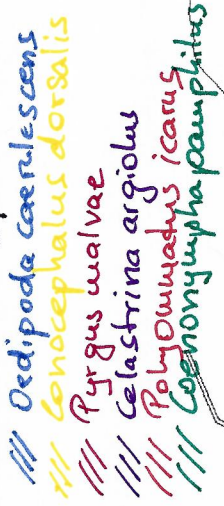 /// Oedipoda caerulescens
/// Conocephalus dorsalis
/// Pyrgus malvae
/// Celastrina argiolus
/// Polyommatus icarus
/// Coenonympha pamphilus